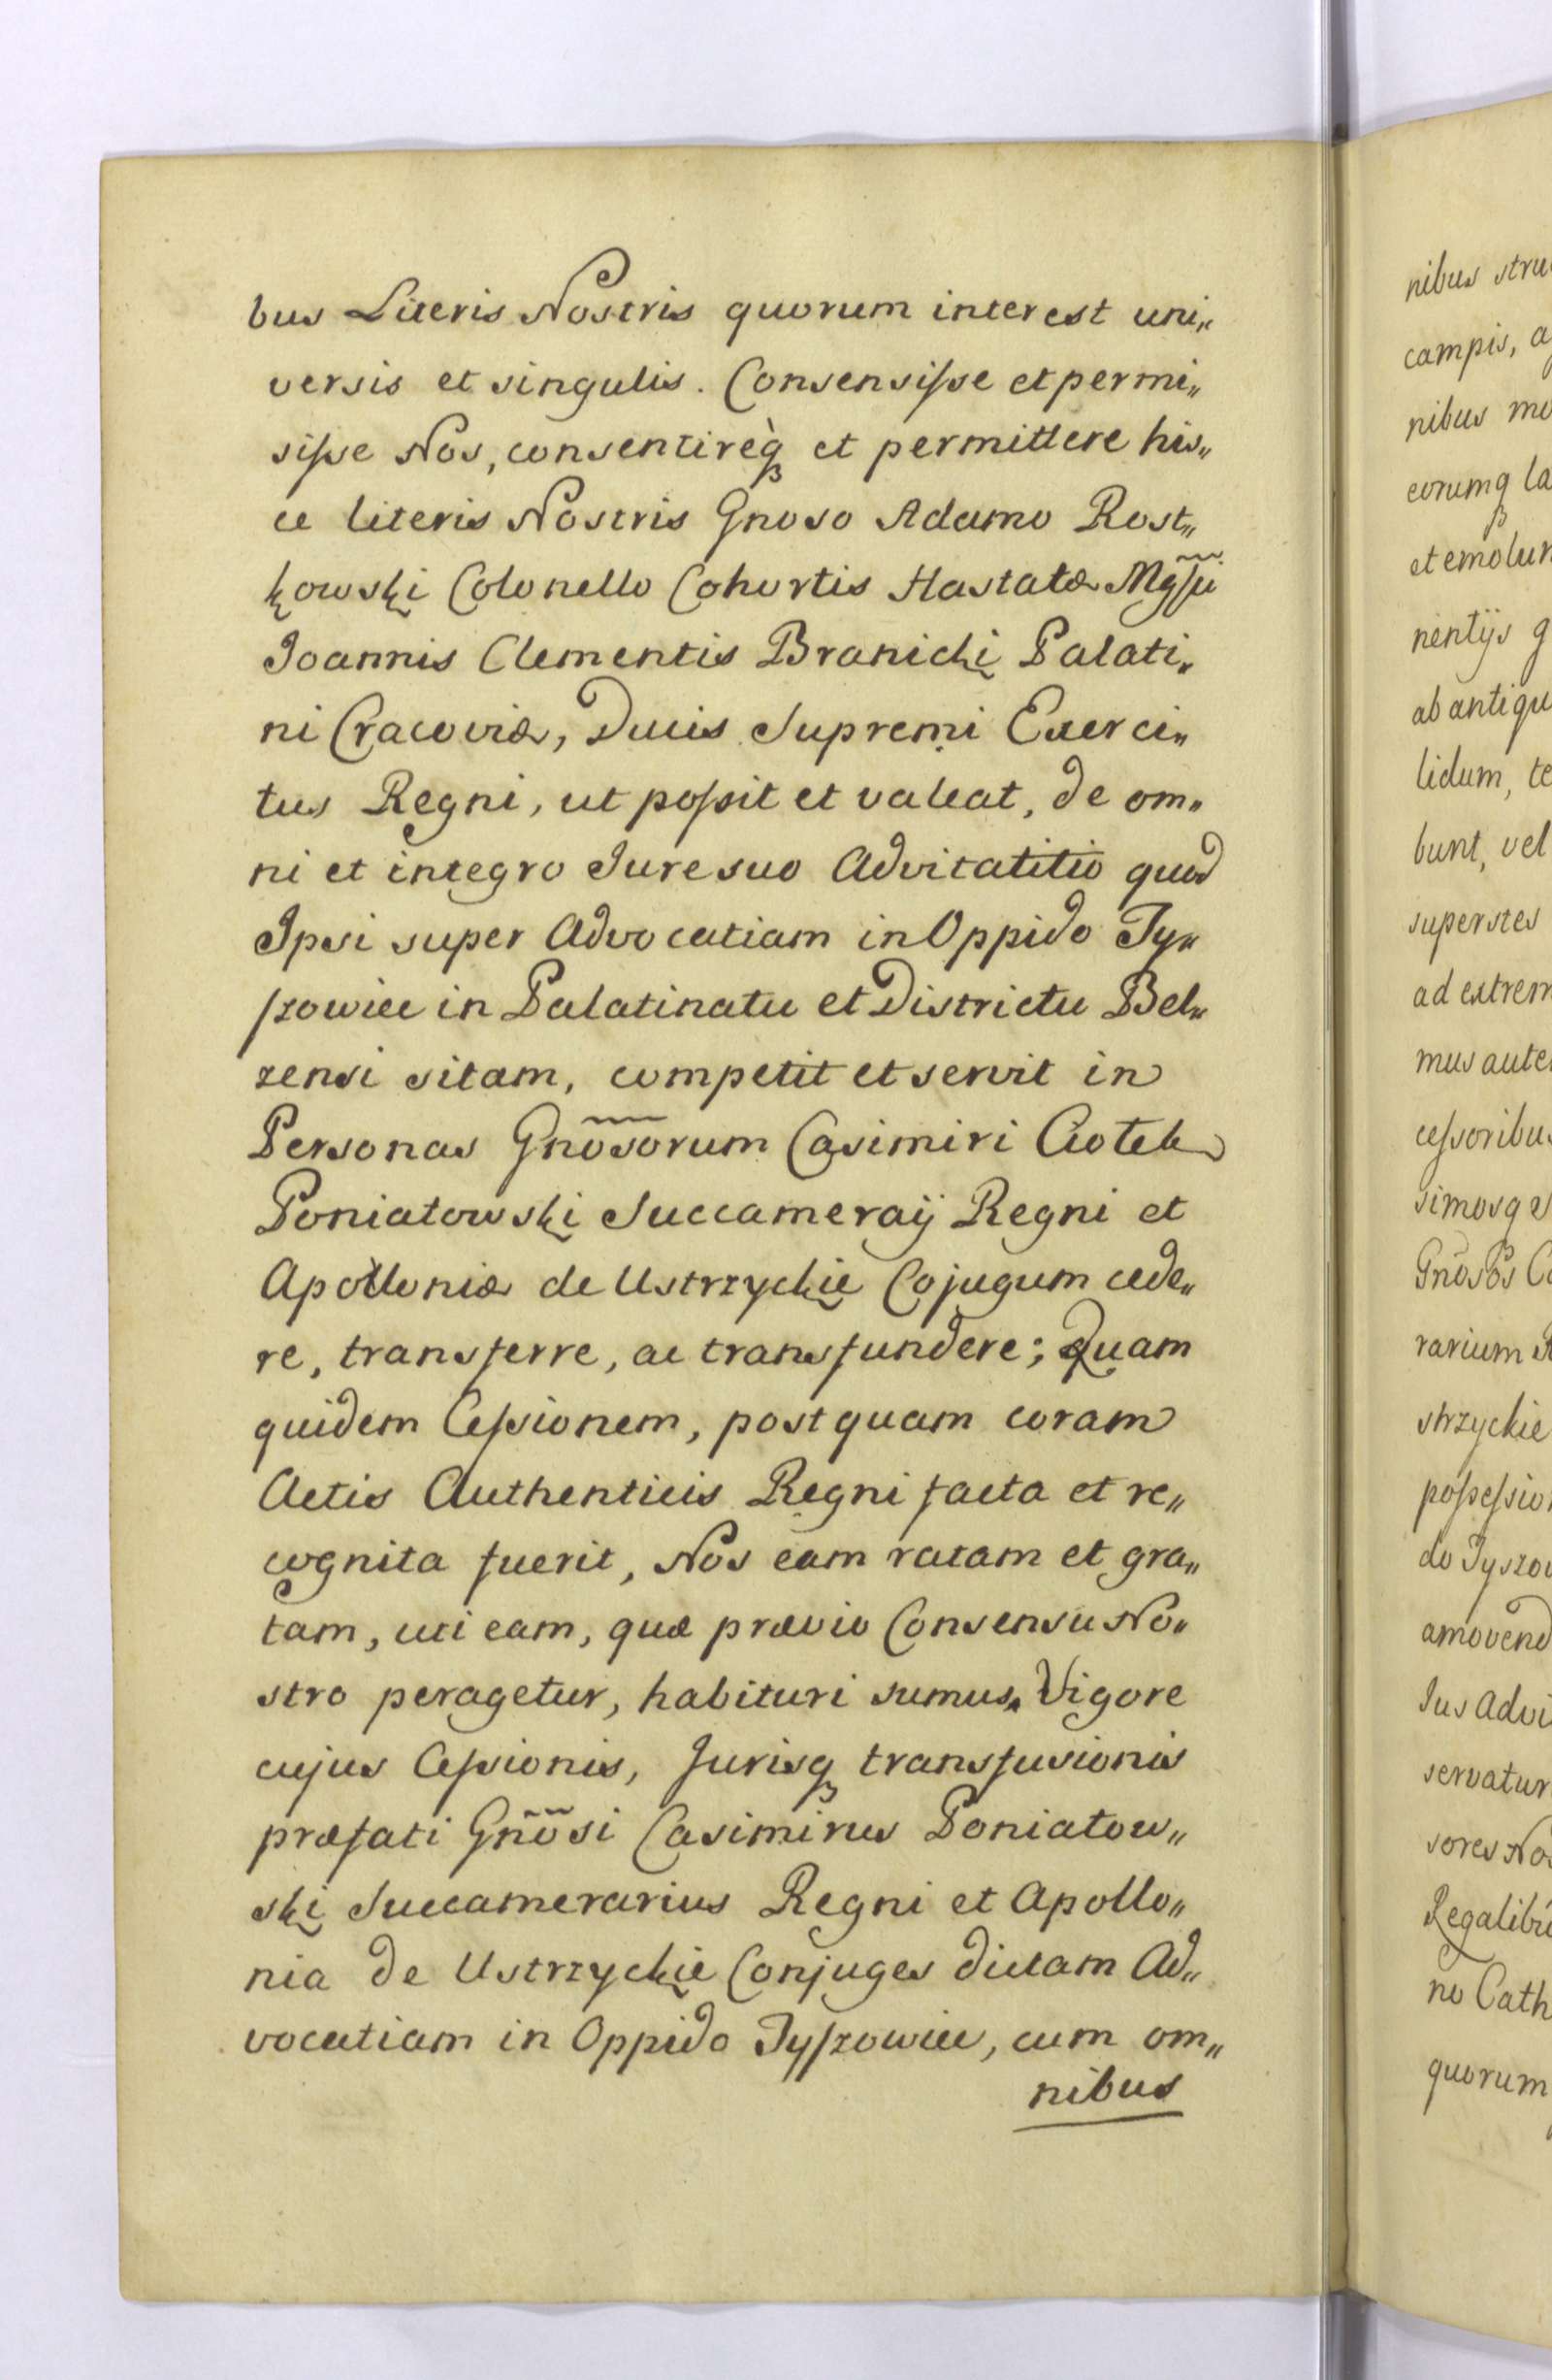 bus Literis Nostris quorum interest uni„
versis et singulis. Consensiſse et permi„
siſse Nos, consentirèq̃ et permittere his„
ce literis Nostris Gnoso Adamo Rost„
kowski Colonello Cohortis Hastatæ Mg̃fici
Joannis Clementis Branicki Palati„
ni Cracoviæ, Ducis Supremi Exerci„
tus Regni, ut poſsit et valeat, de om„
ni et integro Jure suo Advitatitio quod
Ipsi super Advocatiam in Oppido Ty„
ſzowiec in Palatinatu et Districtu Bel„
zensi sitam, competit et servit in
Personas Gnõsorum Casimiri Ciołek
Poniatowski Succameraÿ Regni et
Apolloniæ de Ustrzyckie Cojugum cede„
re, transferre, ac transfundere; Quam
quidem Ceſsionem, postquam coram
Actis Authenticis Regni facta et re„
cognita fuerit, Nos eam ratam et gra„
tam, uti eam, quæ prævio Consensu No„
stro peragetur, habituri sumus. Vigore
cujus Ceſsionis, Jurisq̃ transfusionis
præfati Gñõsi Casimirus Poniatow„
ski Succamerarius Regni et Apollo„
nia de Ustrzyckie Conjuges dictam Ad„
vocatiam in Oppido Tyſzowiec, cum om„
nibus
nibus
campis, a
nibus
eorumq̃ la
et emolum
nentijs
ab antiqu
lidum, te
bunt, vel
superstes
ad extrem
mus aute
ceſsoribus
simosq
Gnõsõs Ca
rarium
strzyckie
poſseſsio
do Tyszow
amovend
Jus Advi
servatur
sores Nos
Regalibu
no Cath
quorum